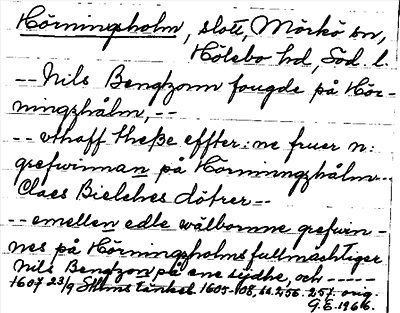 Hörningsholm, slott, Mörkö sn,
Hölebo hd, Söd. l.
-- Nils Bengzonn fougde på Hör-
ningzhålm, --
-- vthaff theße effter: ne fruer n:
grefwinnan på Hörningzhålm--
Claes Bielches dötrer --
-- emellen edle wälbornne grefwin-
nes på Hörningsholms fullmächtiger
Nils Bengzon på ene sijdhe, och -----
1607 23/9 Sthlms tänkeb. 1605-08, s. 256. 257. orig.
G.E. 1966.